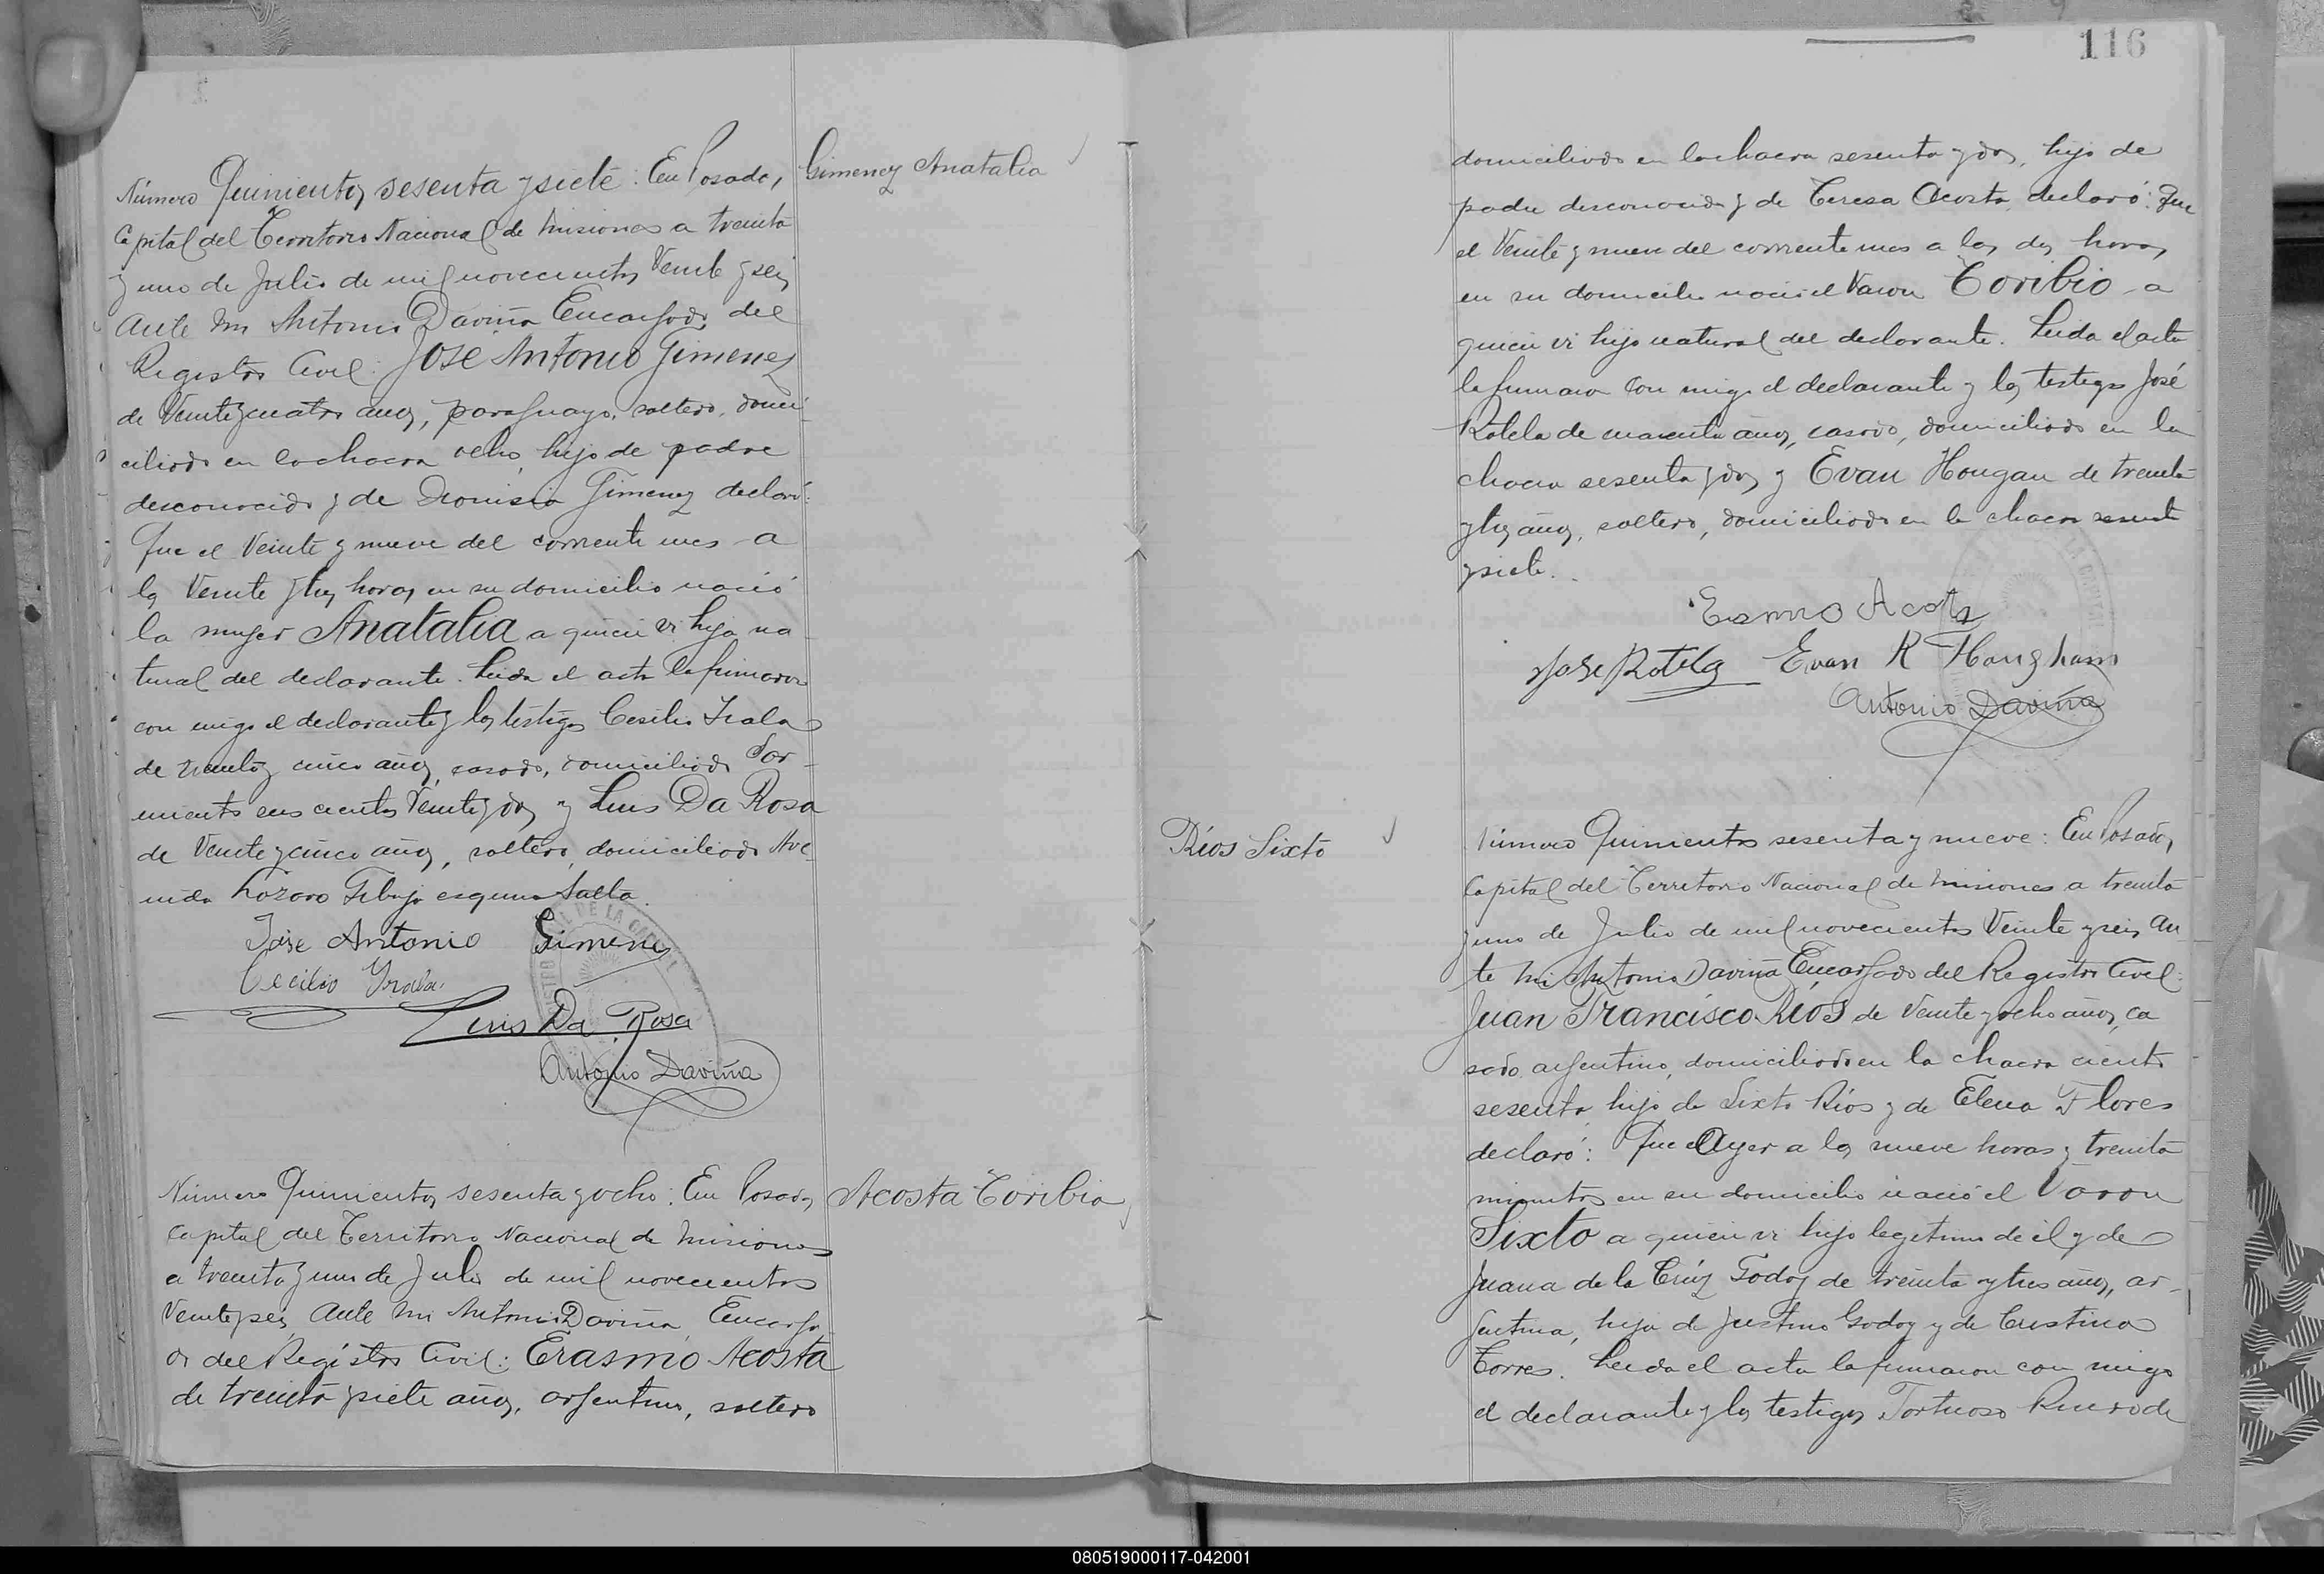 Número Quinientos sesenta y siete: En Posadas,
Capital del Territorio Nacional de Misiones a treinta
y uno de Julio de mil novecientos Veinte y seis
ante mi Antonio Daviña Encargado del
Registro Civil: JOSE ANTONIO Gimenez
de Veinte y cuatro años, paraguayo, soltero, domi
ciliado en la chacra ocho, hijo de padre
desconocido y de Dionisia Gimenez declaró:
Que el Veinte y nueve del corriente mes a
las Veinte y tres horas en su domicilio nació
la mujer Anatalia a quien vi hija na
tural del declarante. Leida el acta la firmaron
con migo el declarante y los testigos Cecilio Irala
de treinta y cinco años, casado, domiciliado Sar
miento seis cientos Veinte y dos y Luis Da Rosa
de Veinte y cinco años, soltero, domiciliado Ave
nida Lozoro esquina Salta.
Gimenez Anatalia
Jose Antonio Gimenez
Cecilio Yrala
Luis Da Rosa
Antonio Daviña
Número Quinientos sesenta y ocho: En Posadas
Capital del Territorio Nacional de Misiones
a treinta y uno de Julio de mil novecientos
Veinte y seis ante mi Antonio Daviña, Encarga
do del Registro Civil: Erasmo Acosta
de treinta y siete años, argentino, soltero
Acosta Toribio
116
domiciliado en la chacra sesenta y dos, hijo de
padre desconocido y de Teresa Acosta, declaró: Que
el Veinte y nueve del corriente mes a las dos horas
en su domicilio nació el Varon Toribio a
quien vi hijo natural del declarante. Leida el acta
la firmaron con migo el declarante y los testigos José
Rotela de cuarenta años, casado, domiciliado en la
chacra sesenta y dos y Evan Hougan de treinta
y tres años, soltero, domiciliado en la chacra sesenta
y siete.
Erasmo Acosta
Jose Rotela Evan R Hougham
Antonio Daviña
Ríos Sixto
Número Quinientos sesenta y nueve: En Posadas,
Capital del Territorio Nacional de Misiones a treinta
y uno de Julio de mil novecientos Veinte y seis an
te mi Antonio Daviña Encargado del Registro Civil:
Juan Francisco Ríos de Veinte y ocho años, ca
sado, argentino, domiciliado en la chacra ciento
sesenta, hijo de Sixto Ríos y de Elena Flores
declaró: Que el Ayer a las nueve horas y treinta
minutos en su domicilio nació el Varon
Sixto a quien vi hijo legitimo de él y de
Juana de la Crúz Godoy de treinta y tres años, ar
gentina, hija de Justino Godoy y de Cristina
Torres. Leida el acta la firmaron con migo
el declarante y los testigos Tortuoso de
080519000117-042001